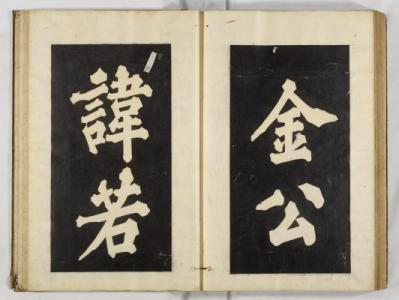 金公
諱若